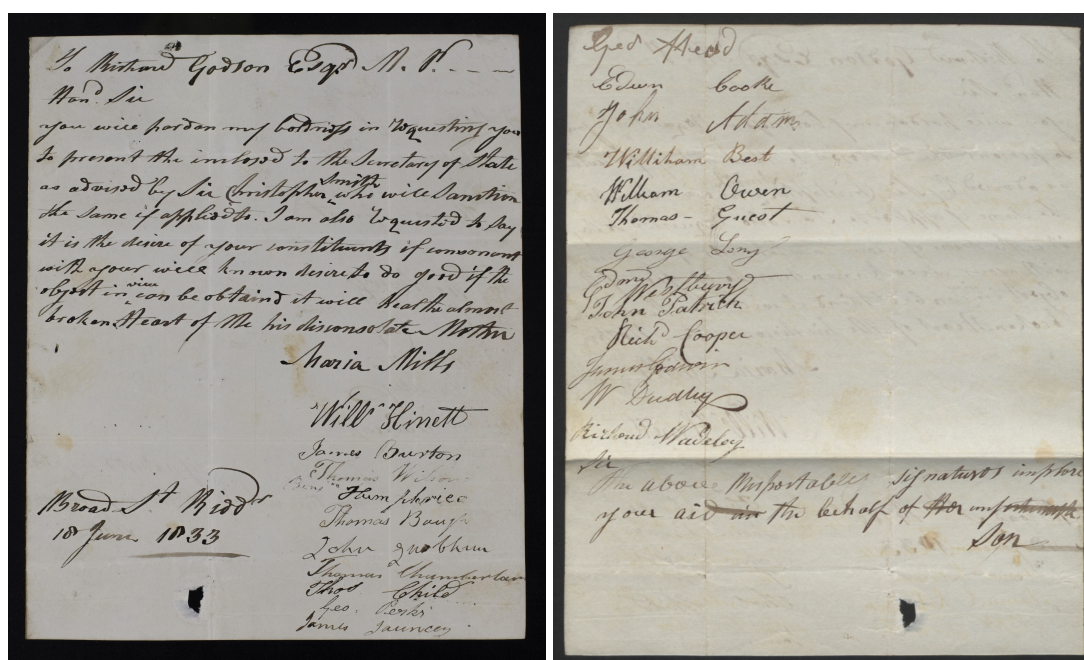 To Richard Godson Esqr M. P.
Hond. Sir
you will pardon my boldness in requesting you
to present the inclosed to the Secretary of State
as advised by Sir Christopher Smith who will Sanction
the same if applied to. I am also requested to say
it is the desire of your constituents if consonant
with your well known desire to do good if the
object in view can be obtaind it will heal the almost
broken Heart of the his disconsolate Mother
Maria Mills
Willm Hinett
James Burton
Thomas
Thomas Baugh
John
Thomas Chamberlain
Thos Child
Geo.
James Jauncey
Broad St Kiddr
18 June 1833
Geo Head
Edwin Cooke
John Adams
Williham Best
William Owen
Thomas - Guest
George Long
Edmd Westbury
John Patrick
Richd Cooper
James Godwin
W Dudley
Richard Wadeley
Sir
The above Respectable signatures implore
your aid in the behalf of Her unfortunate
Son